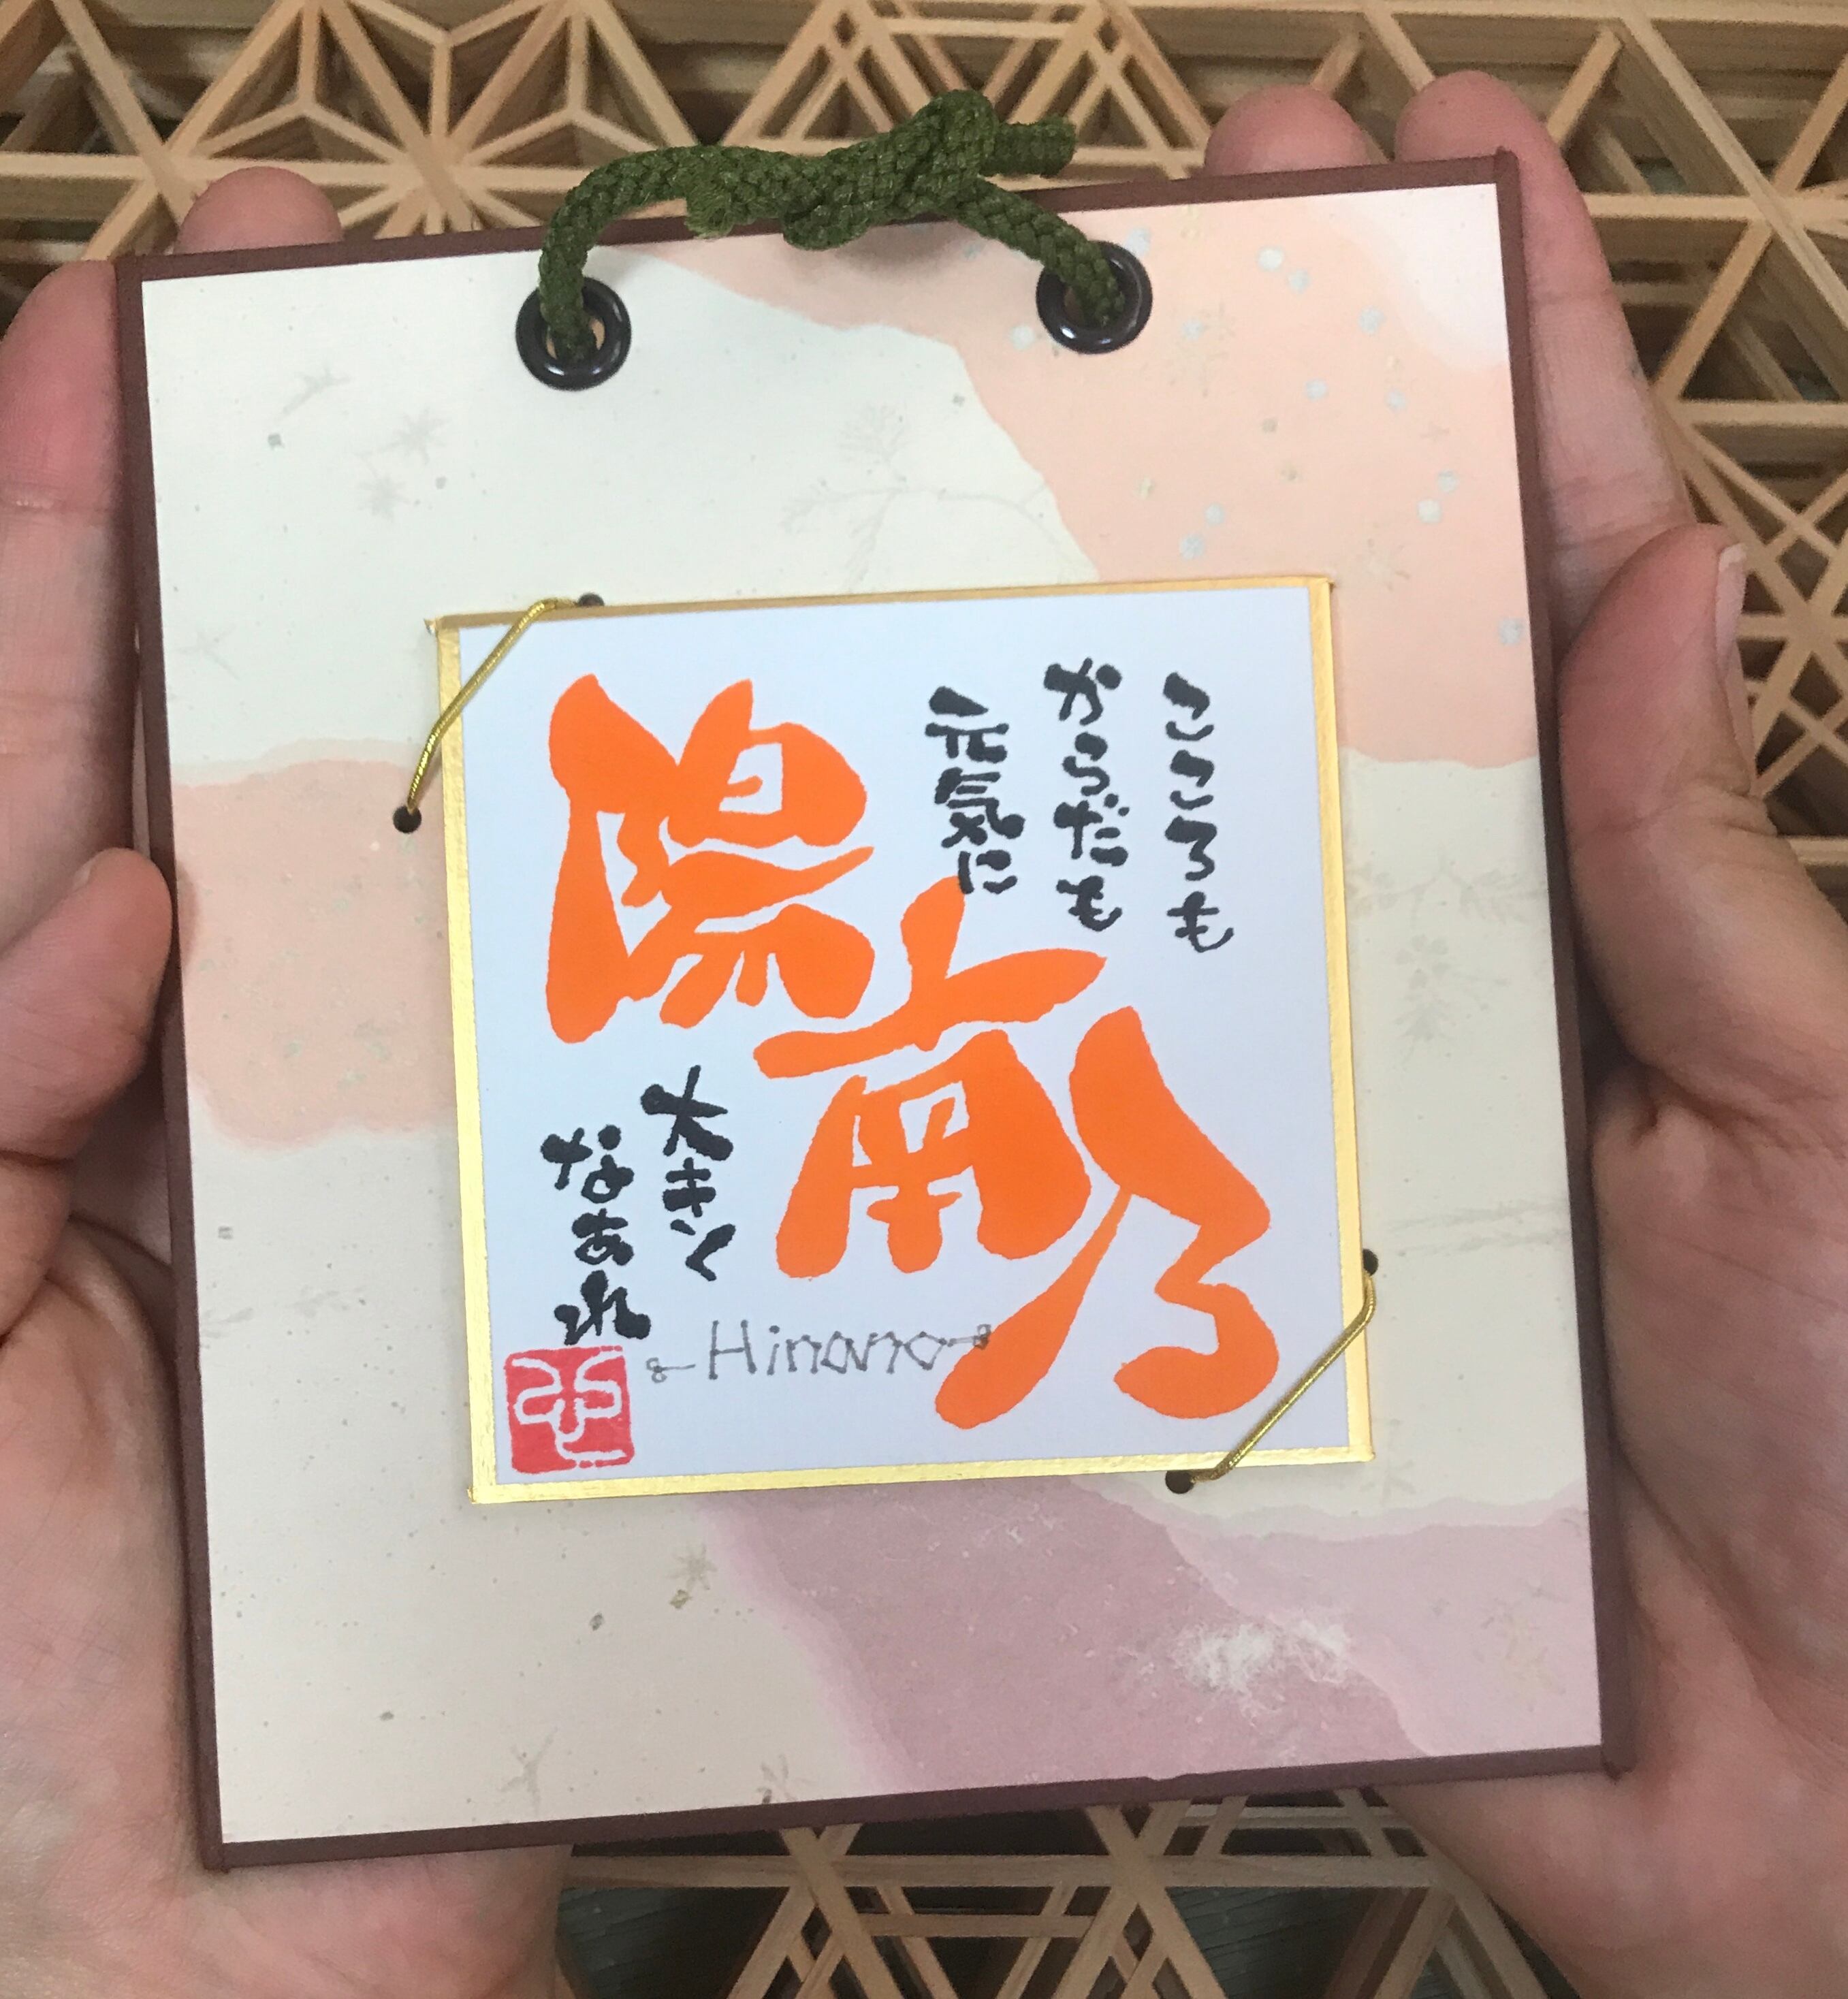 こころも
からだも
元気に
陽南乃
大きく
なあれ
Hinano